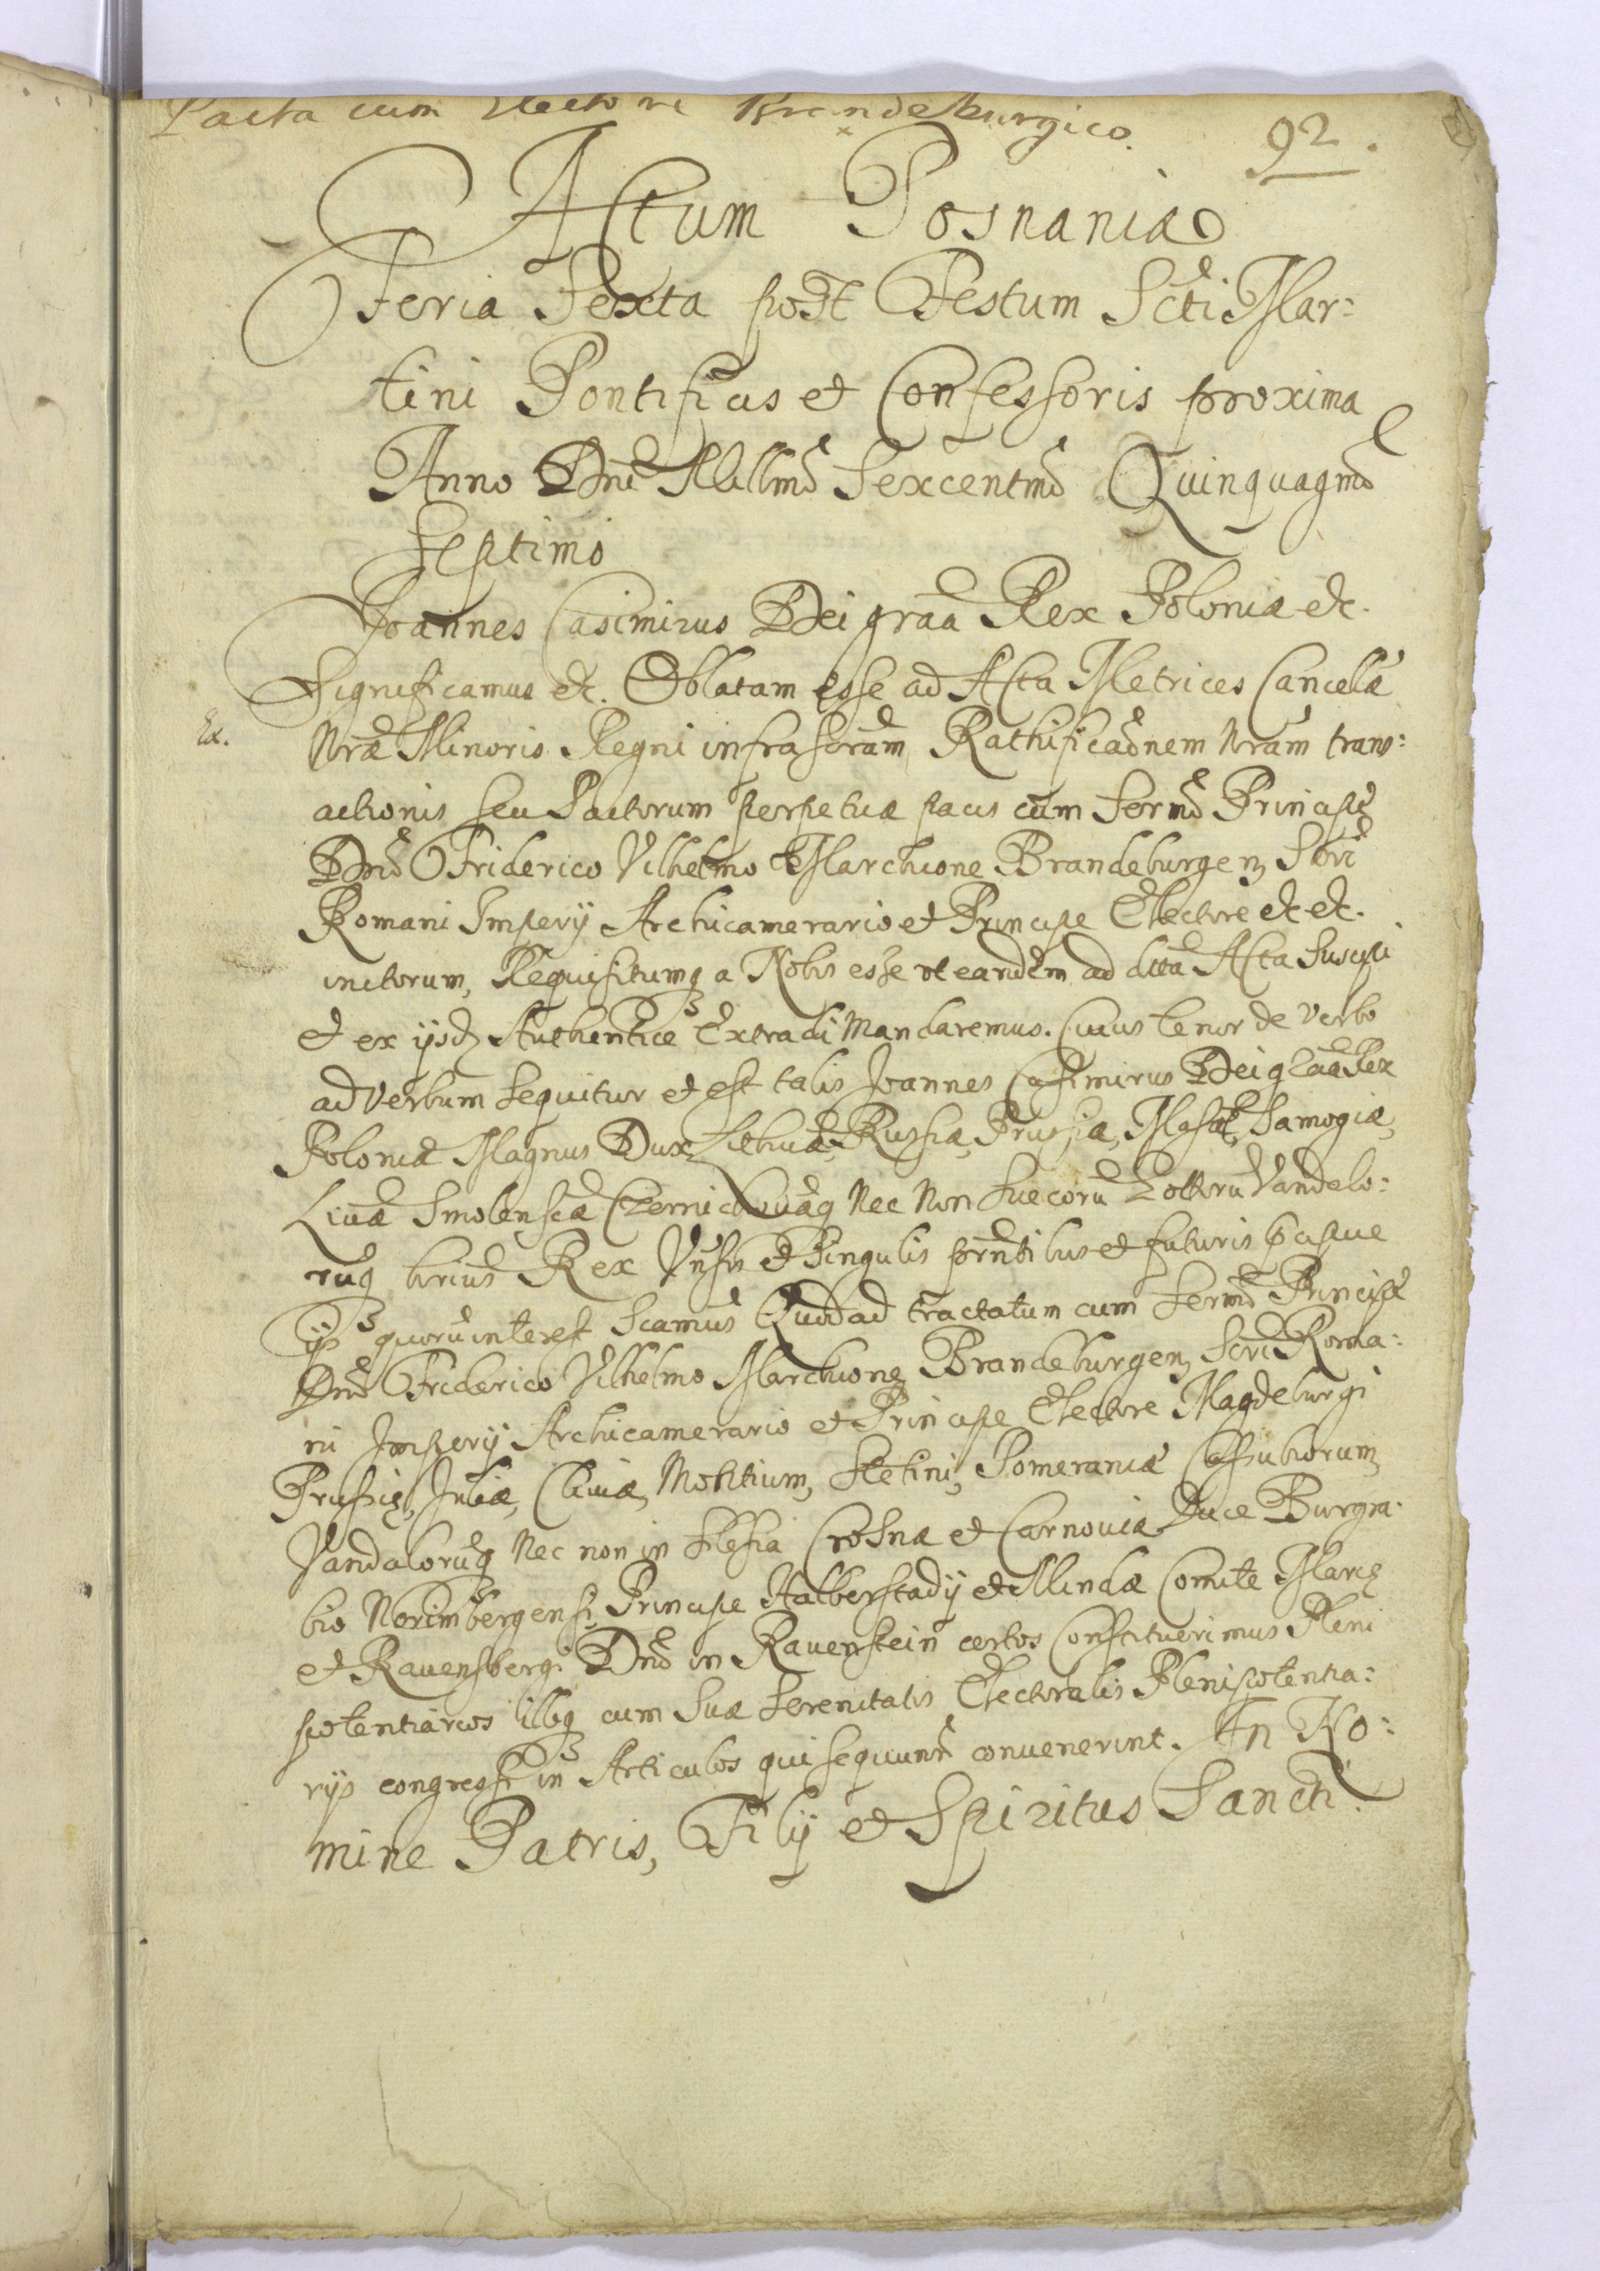 Pacta cum Electore Brandeburgico.
92.
Actum Posnaniæ
Feria Sexta post Festum Scti Mar:
tini Pontificis et Confessoris proxima
Anno Dni Millmo Sexcentmo Quinquagmo
Septimo
Joannes Casimirus Dei graa Rex Poloniæ etc.
Significamus etc. Oblatam esse ad Acta Metrices Cancellæ
Ex.
Nræ Minoris Regni infrascram Rathificaonem Nram trans:
actionis seu Pactorum perpetuæ pacis cum Sermo Principe
Dno Friderico Vilhelmo Marchione Brandeburgen, Scri
Romani Impery Archicamerario et Principe Electore etc etc.
initorum, Requisitumq a Nobis esse ut eandem ad dicta Acta Suscipi
et ex ijsd Authentice Extradi Mandaremus. Cuius tenor de verbo
ad verbum sequitur et est talis Joannes Casimirus Dei graa Rex
Poloniæ Magnus Dux Lithuæ, Russiæ, Prussiæ, Masoæ, Samogiæ,
Livæ Smolensciæ Czernichouiæq Nec Non Suecoru Gottoru Vandalo:
ruq hærius Rex Vnsis et Singulis prntibus et futuris
ijs quoru interest Scamus Quod ad tractatum cum Sermo Principe
Dno Friderico Vilhelmo Marchione Brandeburgen, Scri Roma:
ni Impery Archicamerario et Principe Electore Magdeburgi
Prussiæ, Juliæ, Cliuiæ, Montium, Stetini, Pomeraniæ Cassubiorum,
Vandaloruq Nec non in Silesia Crosnæ et Carnouiæ Duce Burgra:
bio Norimbergensi, Principe Halberstadij et Mindæ Comite Marcæ
et Rauensbergi Dno in Rauenstein certos Constituerimus Pleni
potentiarios illiq cum Suæ Serenitatis Electoralis Plenipotentia:
rijs congressi in Articulos qui sequuntr convenerint. In No:
mine Patris, Filij et Spiritus Sancti.